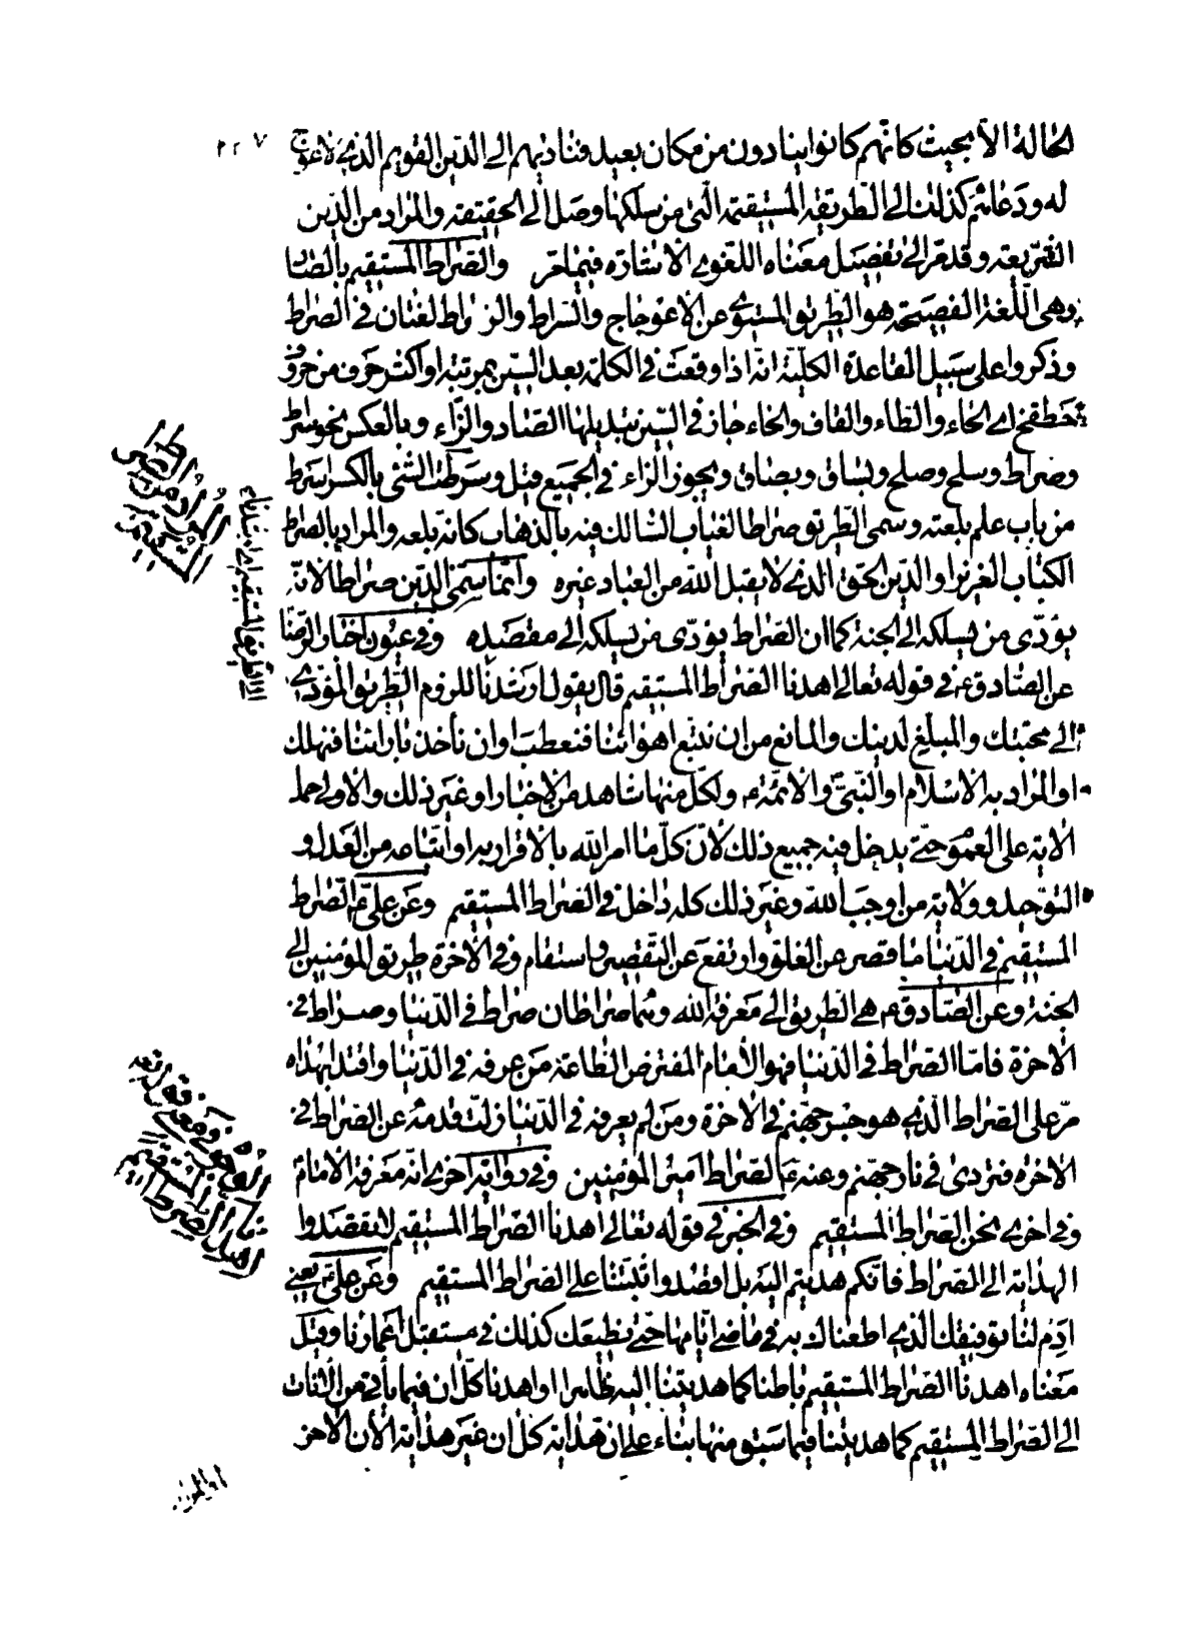 ٢٢٧
الحالة الا بحيث كانهم كانوا ينادون من مكان بعيد فناديهم الى الدين القويم الذى لا عوج
له ودعائهم كذلك الى الطريقة المستقيمة التى من سلكها وصل الى الحقيقة والمراد من الدين
الشريعة وقد مر الى تفصيل معناه اللغوى الاشارة فيما مر والصراط المستقيم بالصاد
وهى اللغة الفصيحة هو الطريق المستوى عن الاعوجاج والسراط والزراط لغتان فى الصراط
وذكروا على سبيل القاعدة الكلية انه اذا وقعت فى الكلمة بعد السين بمرتبة او اكثر حرف من حروف
حطقخ اى الحاء والطاء والقاف والخاء جاز فى السين تبديلها الصاد والزاء وبالعكس نحو سراط
وصراط وسلح وصلح ويساق ويصاق ويجوز الزاء فى الجميع قيل وسرطت الشئ بالكسر سرط
من باب علم بلعته وسمى الطريق صراطا لغياب السالك فيه بالذهاب كانه بلعه والمراد بالصراط
الكتاب العزيز او الدين الحق الذى لا يقبل الله من العباد غيره وانما سمى الدين صراطا لانه
يؤدى من يسلكه الى الجنة كما ان الصراط يؤدى من يسلكه الى مقصده وفى عيون اخبار الرضا
عن الصادق ع فى قوله تعالى اهدنا الصراط المستقيم قال يقول ارشدنا للزوم الطريق المؤدى
الى محبتك والمبلغ لدينك والمانع من ان نتبع اهوائنا فنعطب او ان نأخذ بارائنا فنهلك
او المراد به الاسلام او النبى والائمة ع ولكل منها شاهد من الاخبار او غير ذلك والاولى حمل
الاية على العموم حتى يدخل فيه جميع ذلك لان كل ما امر الله بالاقرار به او اتباعه من العدل و
التوحيد وولاية من اوجب الله وغير ذلك كله داخل فى الصراط المستقيم وعن على ع الصراط
المستقيم فى الدنيا ما قصر عن الغلو وارتفع عن التقصير واستقام وفى الاخرة طريق المؤمنين الى
الجنة وعن الصادق ع هى الطريق الى معرفة الله وهما صراطان صراط فى الدنيا وصراط فى
الاخرة فاما الصراط فى الدنيا فهو الامام المفترض الطاعة من عرفه فى الدنيا واقتدى بهداه
مر على الصراط الذى هو جسر جهنم فى الاخرة ومن لم يعرفه فى الدنيا زلت قدمه عن الصراط فى
الاخرة فتردى فى نار جهنم وعنه ع الصراط امير المؤمنين وفى رواية اخرى انه معرفة الامام
وفى اخرى نحن الصراط المستقيم وفى الخبر فى قوله تعالى اهدنا الصراط المستقيم لا تقصدوا
الهداية الى الصراط فانكم هديتم اليه بل اقصدوا ثبتنا على الصراط المستقيم وعن على ع يعنى
ادم لنا توفيقك الذى اطعناك به فى ماضى ايامنا حتى نطيعك كذلك فى مستقبل اعمارنا وقيل
معناه اهدنا الصراط المستقيم باطنا كما هديتنا اليه ظاهرا او اهدنا كل ان فيما يأتى من الانات
الى الصراط المستقيم كما هديتنا فيما سبق منها بناء على ان هداية كل ان غير هداية الان الاخر
المراد من الصراط
المستقيم
الوجوه فى معنى قوله تعالى
اهدنا الصراط المستقيم